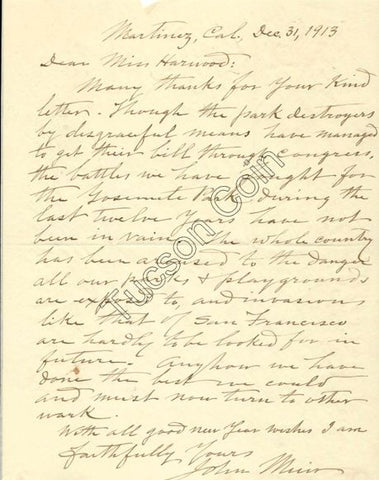 Martinez, Cal. Dec. 31, 1913
Dear Miss Harwood:
Many thanks for your kind
letter. Though the park destroyers
by disgraceful means have managed
to get their bill through Congress,
the battles we have fought for
the Yosemite Park during the
last twelve years have not
been in vain. The whole country
has been aroused to the danger
all our parks & playgrounds
are exposed to, and invasions
like that of San Francisco
are hardly to be looked for in
future. Anyhow we have
done the best we could
and must now turn to other
work.
With all good New Year wishes I am
faithfully Yours
John Muir
Tucson Coin